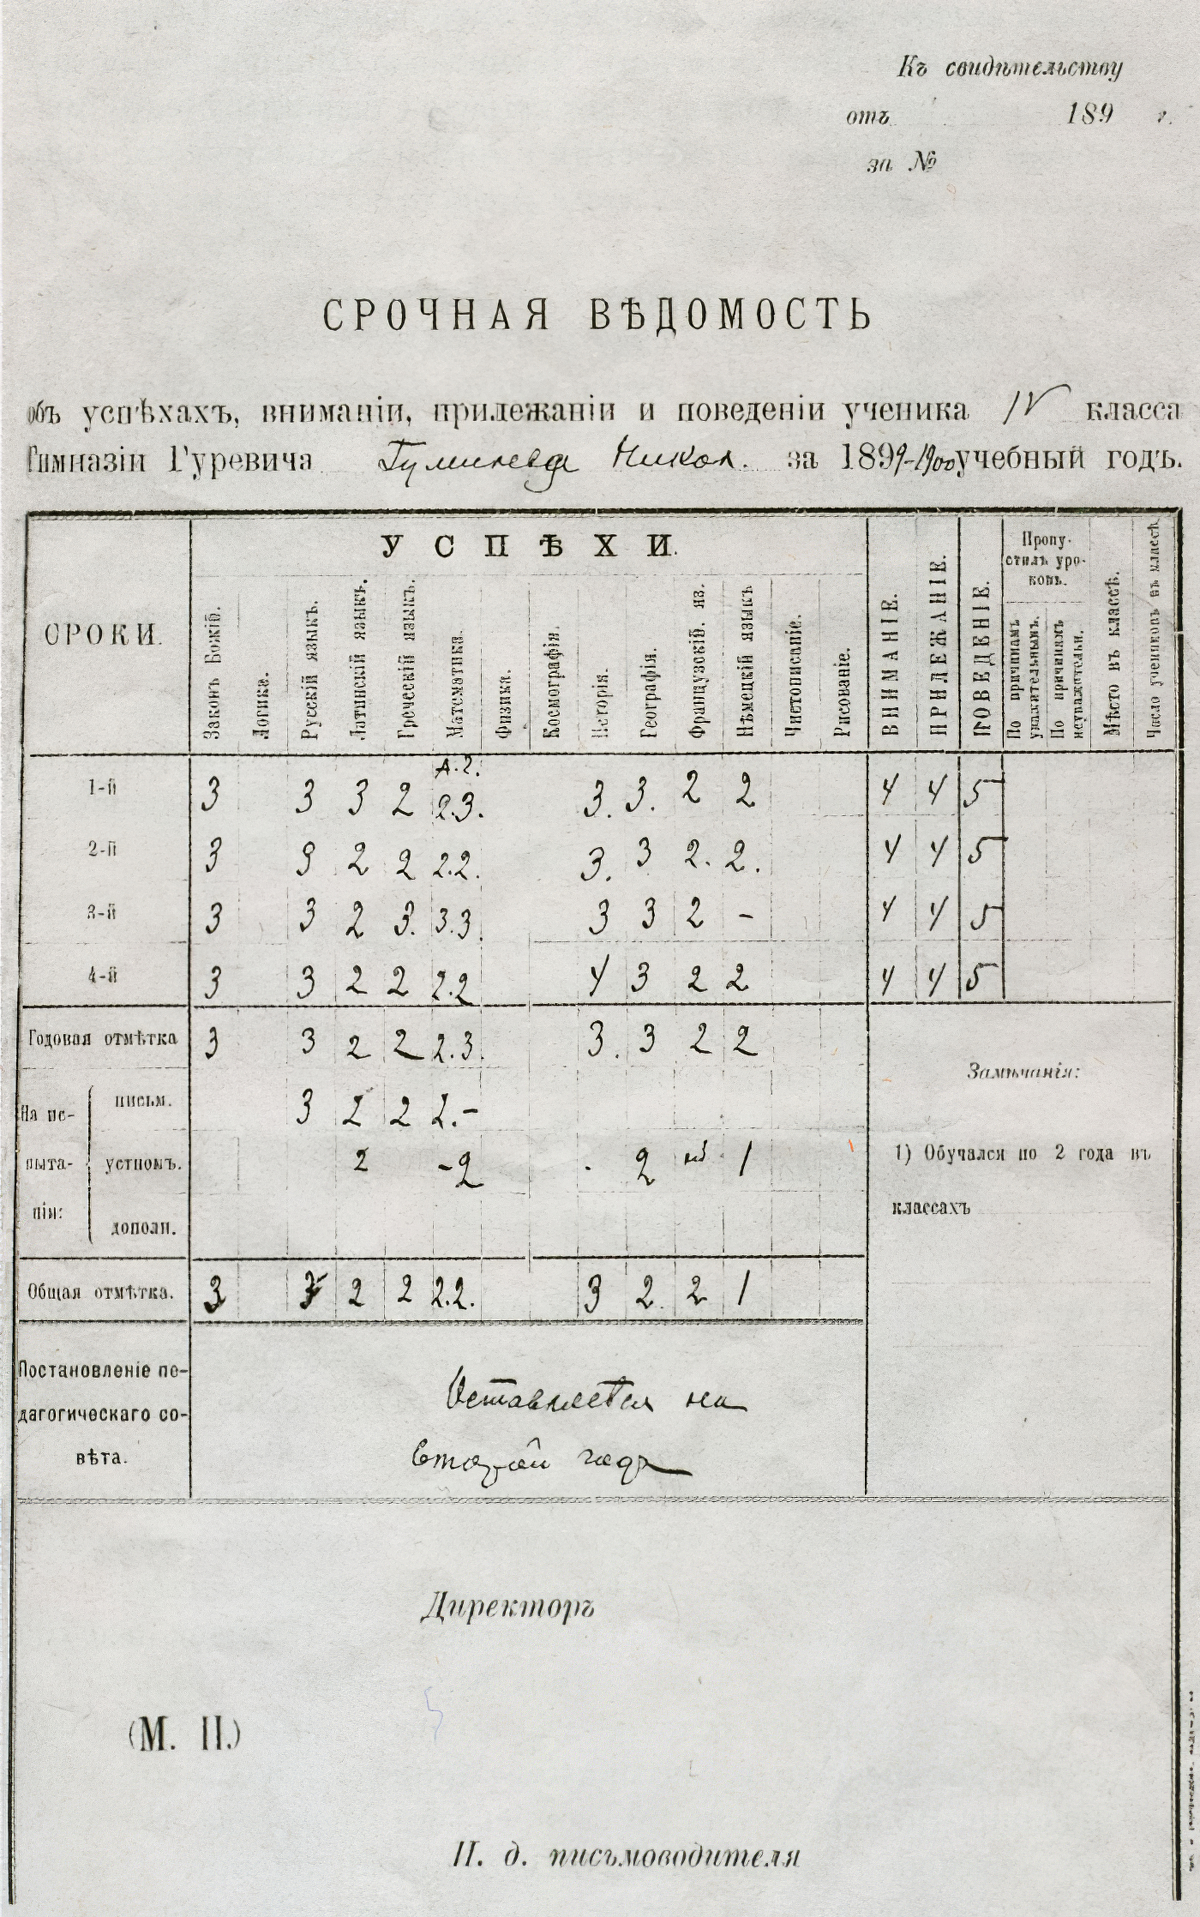 Къ свидѣтельству
отъ 189 г.
за №
СРОЧНАЯ ВѢДОМОСТЬ
объ успѣхахъ, вниманіи, прилежаніи и поведеніи ученика IV класса
Гимназіи Гуревича Гумилева Никол. за 1899-1900 учебный годъ.
СРОКИ.
УСПѢХИ.
Законъ Божій.
Логика.
Русскій языкъ.
Латинскій языкъ.
Греческій языкъ.
Математика.
Физика.
Космографія.
Исторія.
Географія.
Французскій. яз.
Нѣмецкій языкъ
Чистописаніе.
Рисованіе.
ВНИМАНІЕ.
ПРИЛЕЖАНІЕ.
ПОВЕДЕНІЕ.
Пропу-
стилъ уро-
ковъ.
По причинамъ
уважительнымъ.
По причинамъ
неуважительн.
Мѣсто въ классѣ.
Число учениковъ въ классѣ.
А.г.
1-й 3 3 3 2 2.3. 3. 3. 2 2 4 4 5
2-й 3 3 2 2 2.2. 3. 3 2. 2. 4 4 5
3-й 3 3 2 3. 3.3. 3 3 2 - 4 4 5
4-й 3 3 2 2 2.2 4 3 2 2 4 4 5
Годовая отмѣтка 3 3 2 2 2.3. 3. 3 2 2
На ис-
пыта-
ніи:
письм. 3 2 2 2.-
устномъ. 2 -2 2 1
дополн.
Общая отмѣтка. 3 3 2 2 2.2. 3 2 2 1
Замѣчанія:
1) Обучался по 2 года въ
классахъ
Постановленіе пе-
дагогическаго со-
вѣта.
Оставляется на
второй годъ
Директоръ
(М. П.)
И. д. письмоводителя